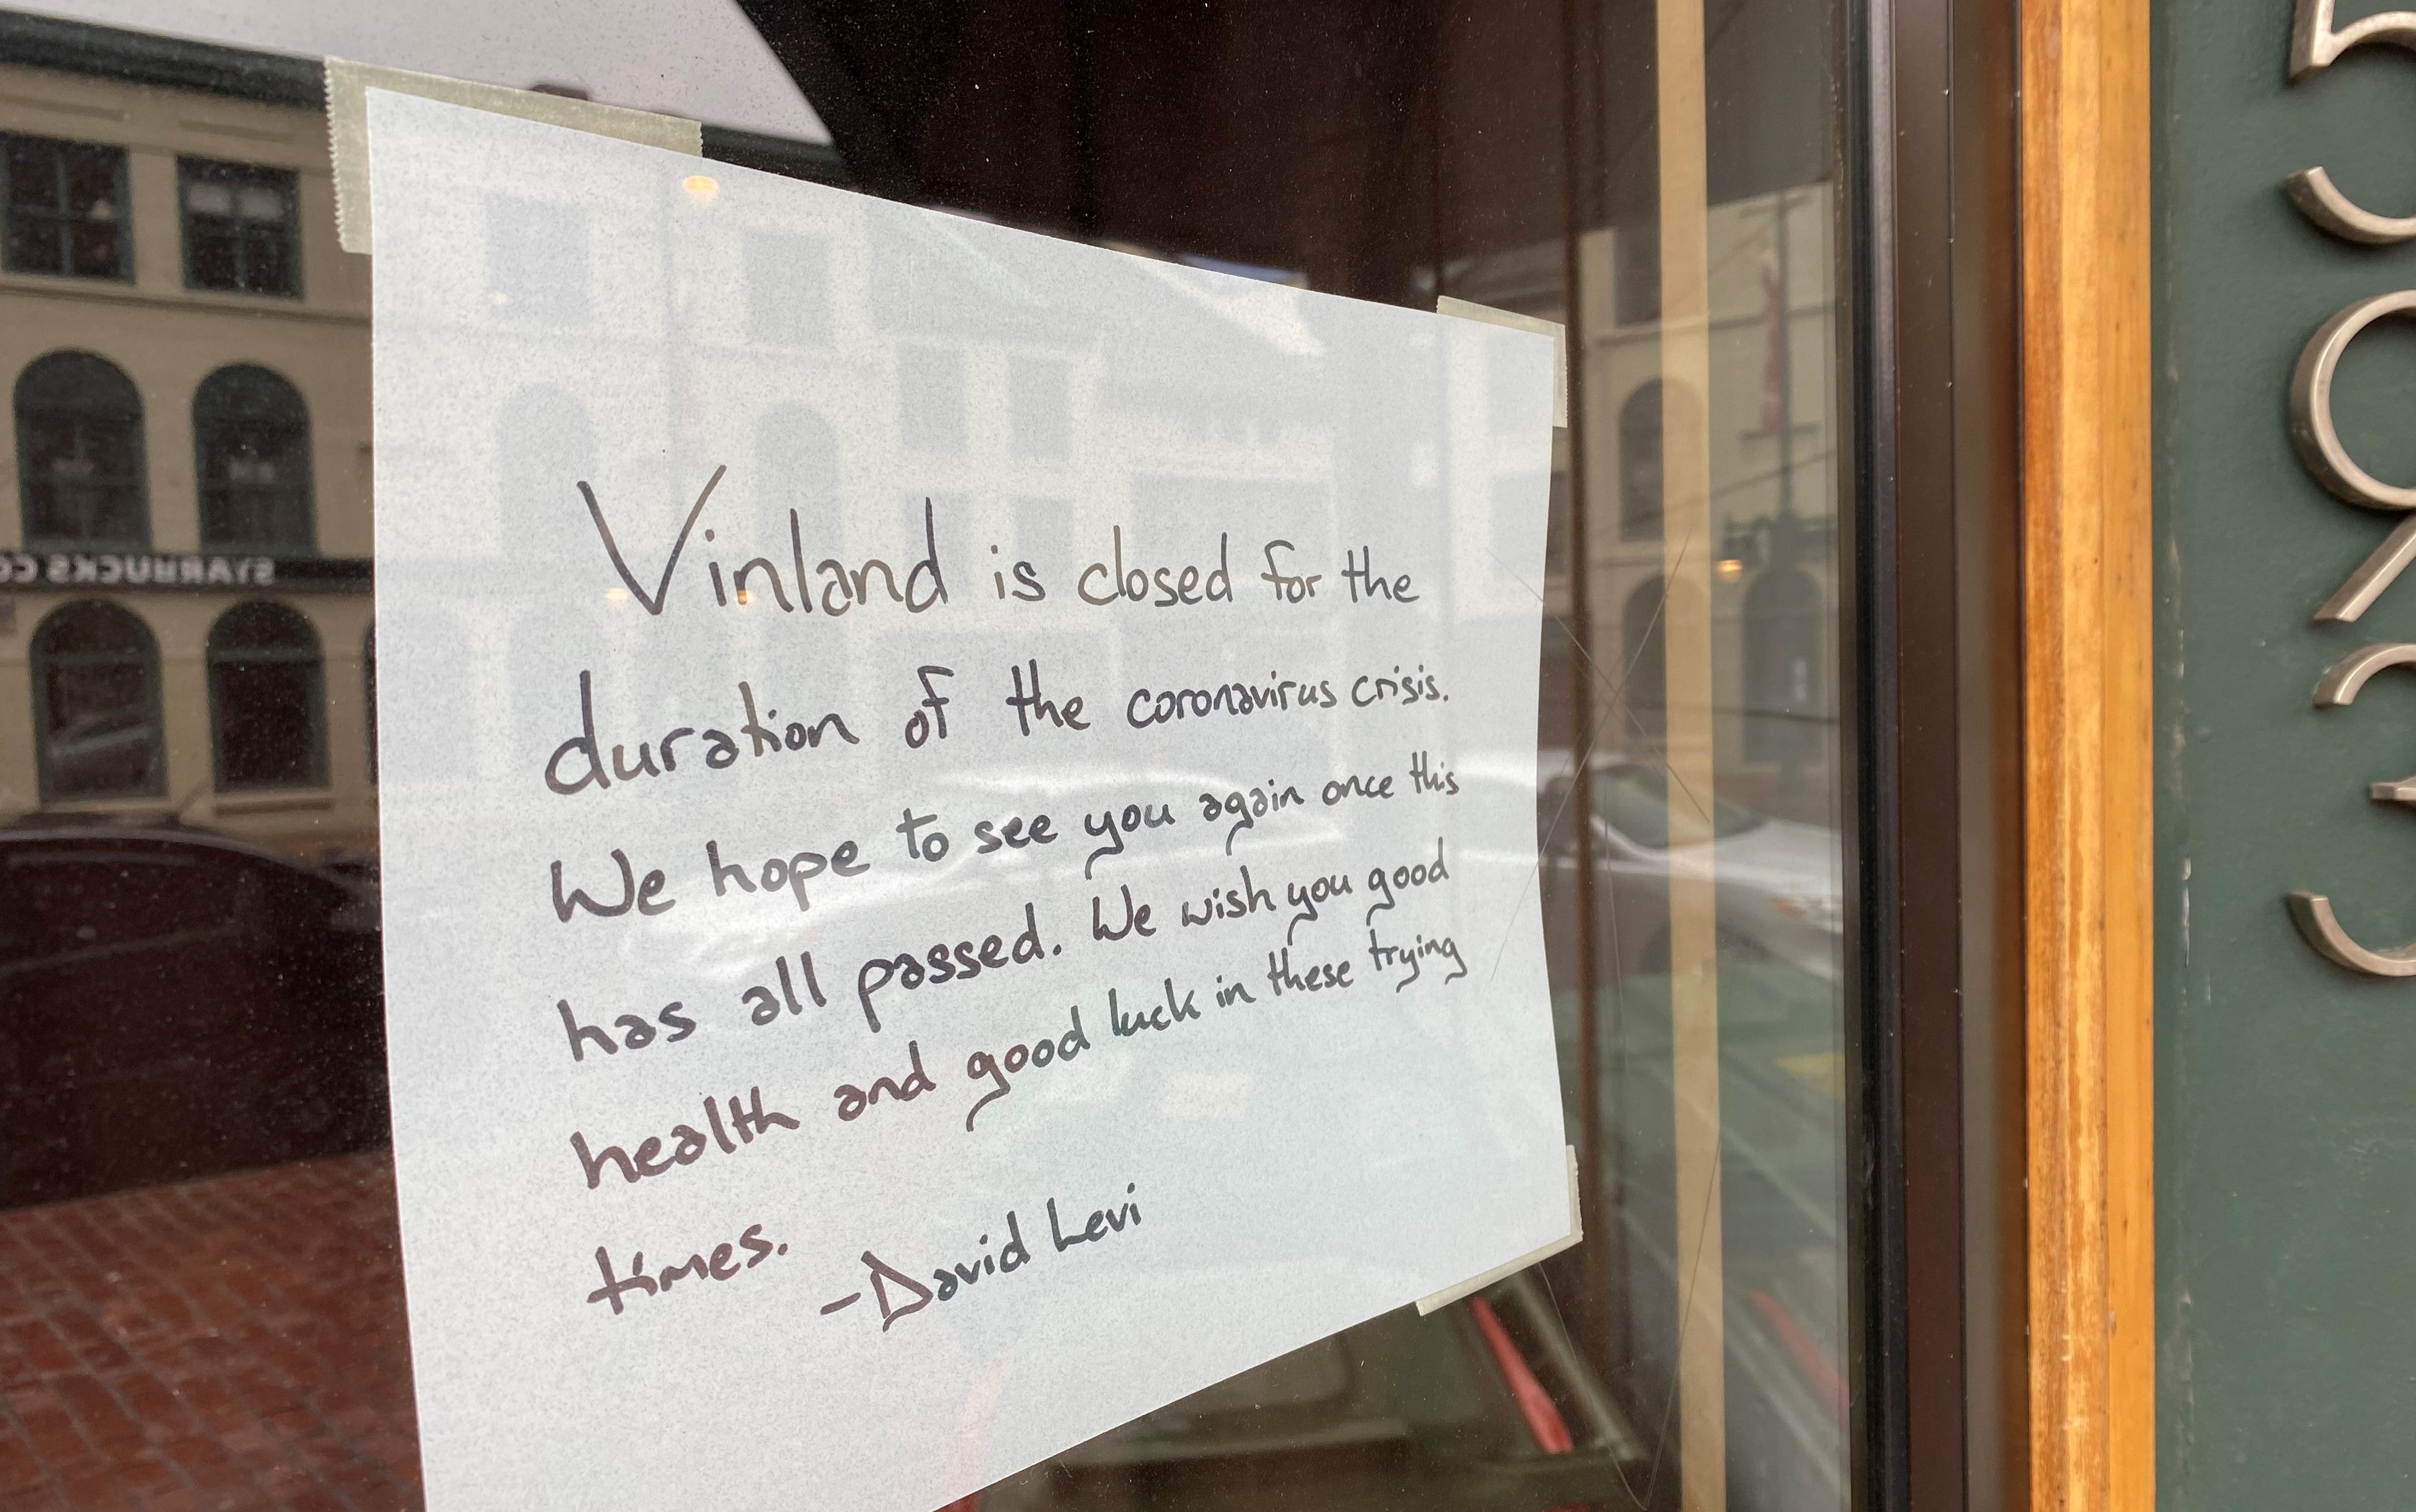 Vinland is closed for the
duration of the coronavirus crisis.
We hope to see you again once this
has all passed. We wish you good
health and good luck in these trying
times.
-David Levi
STARBUCKS CO
593